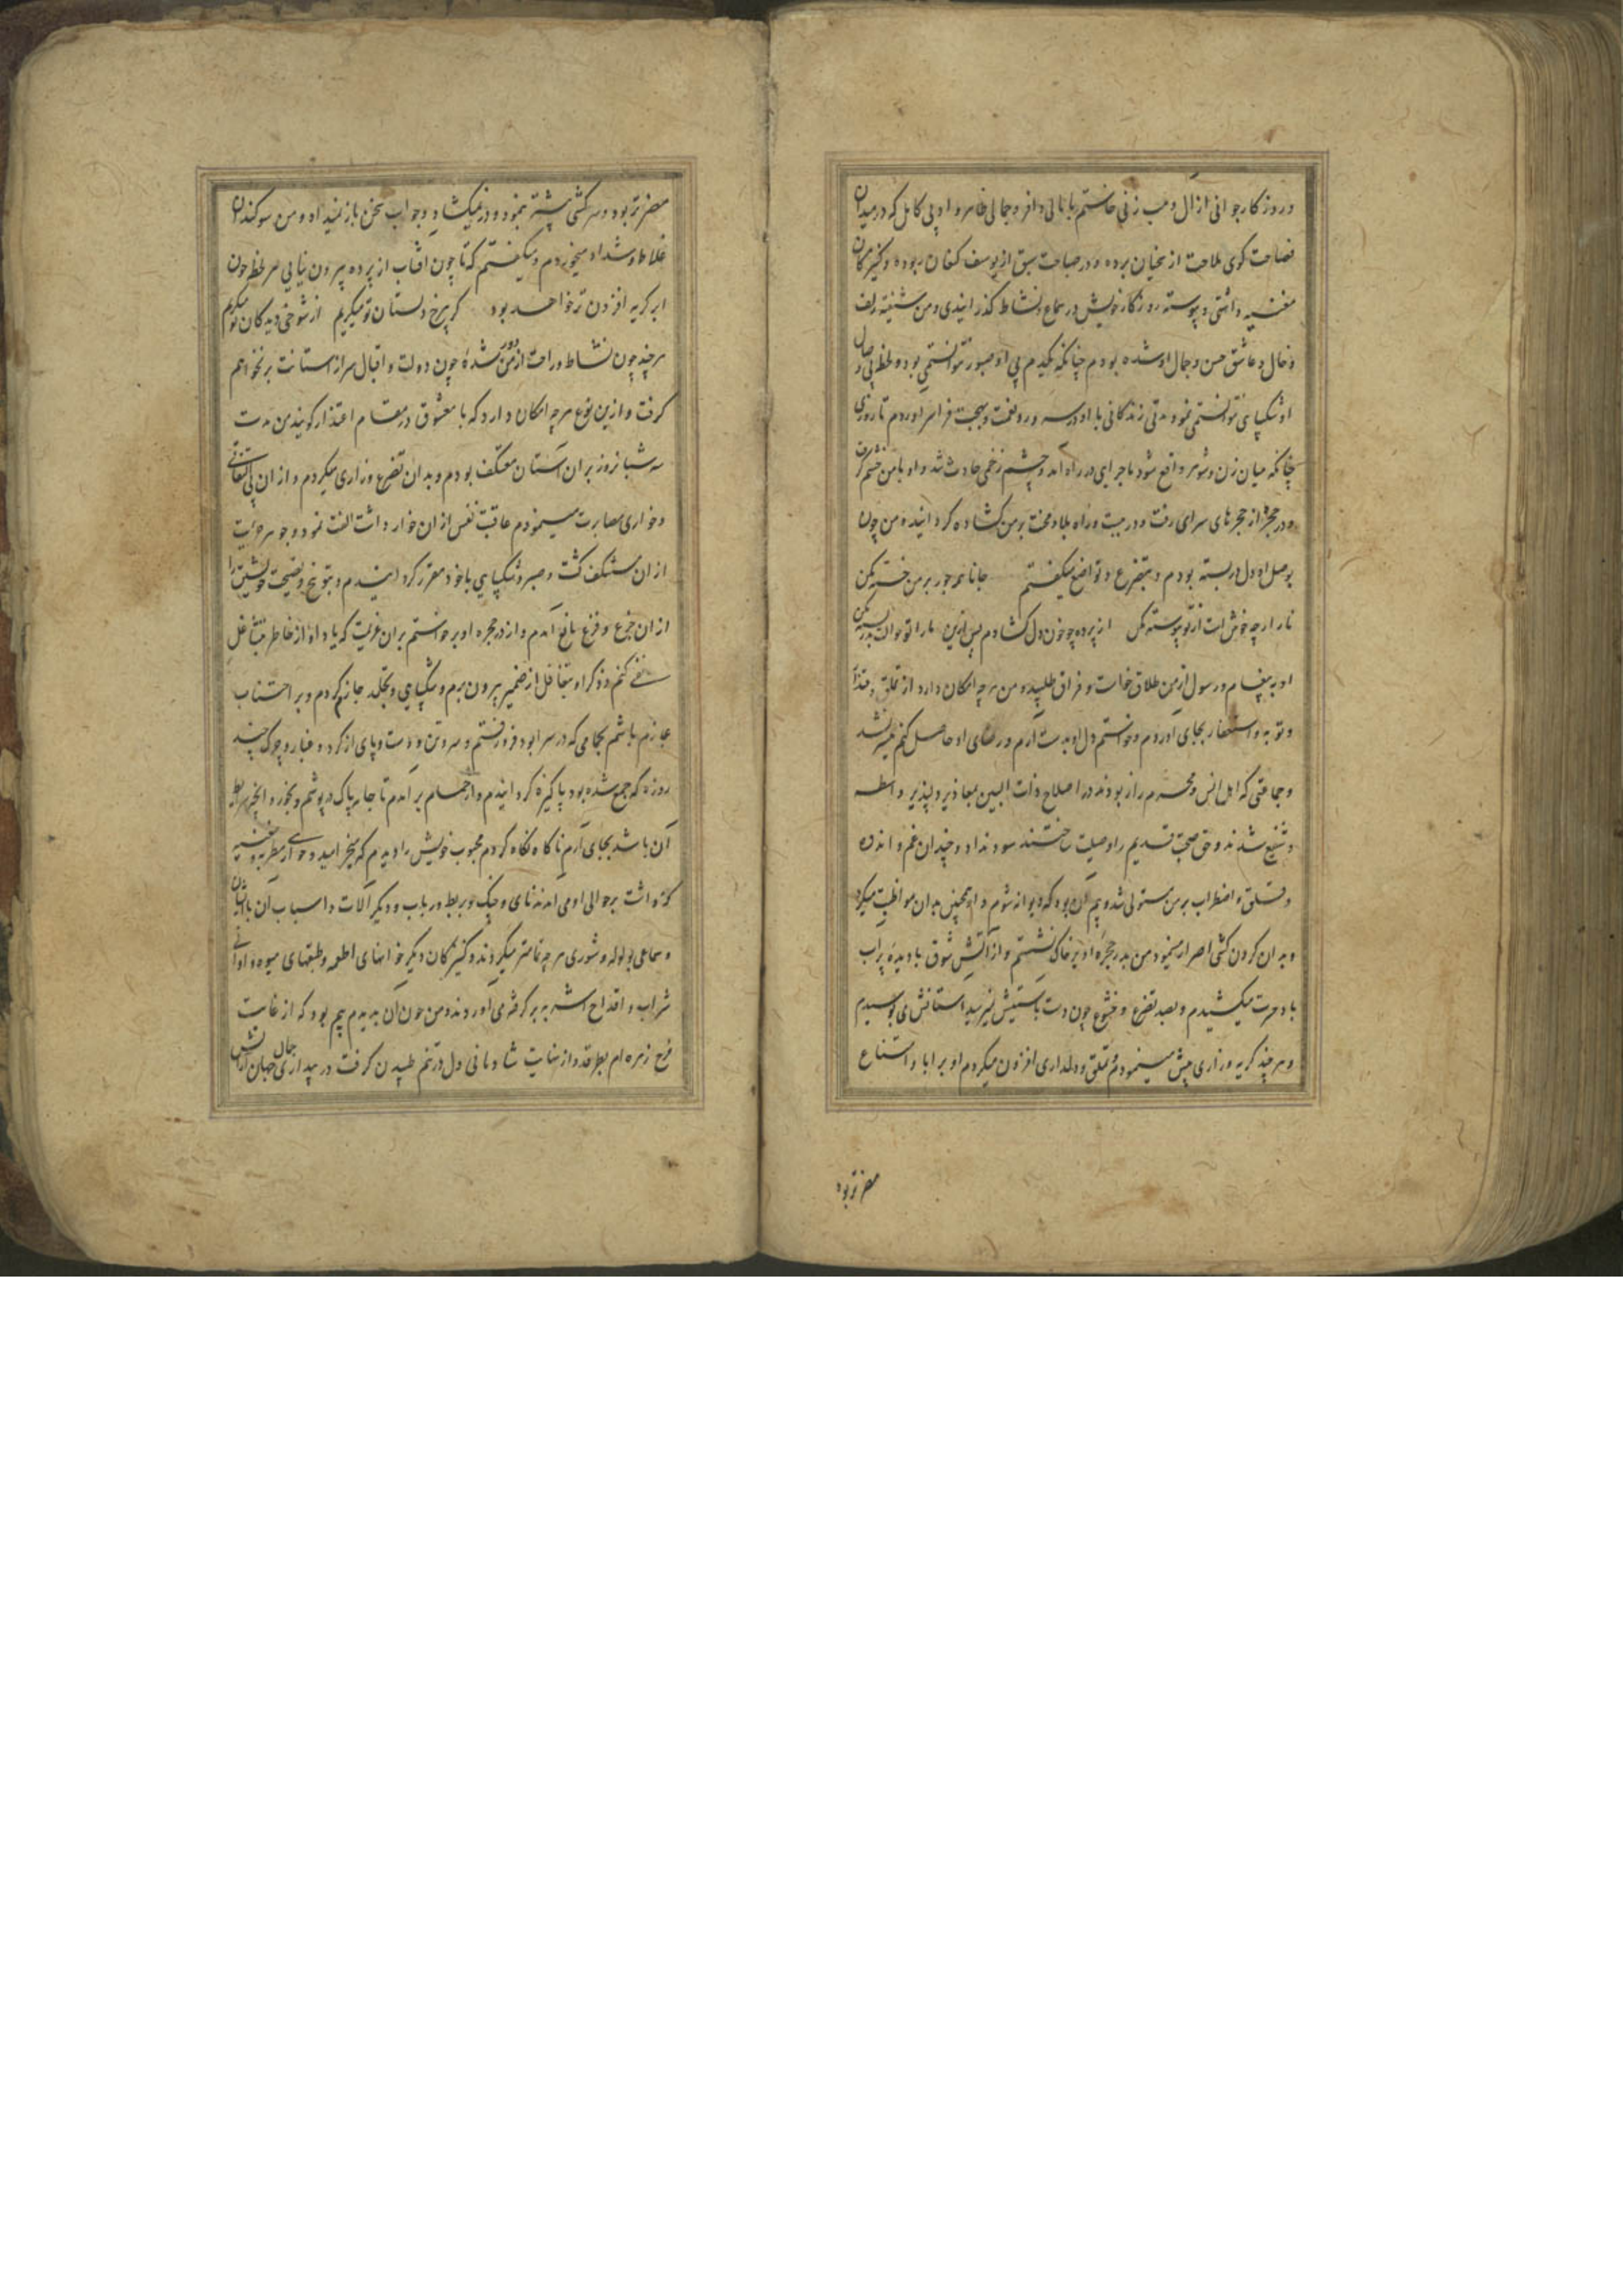 در روزگار جوانی از آل وهب زنی خواستم با مالی وافر و جمالی ظاهر و ادبی کامل که در میدان
فصاحت گوی ملاحت از سخبان برده و در صباحت سبق از یوسف کنعان ربوده و کنیزکان
مغنیه داشتی و پیوسته روزگار خویش در سماع و نشاط گذرانیدی و من شیفته زلف
و خال و عاشق حسن و جمال او شده بودم چنانکه یکدم بی او صبور نتوانستمی بود و لحظه بی وصال
او شکیبایی نتوانستمی نمود مدتی زندگانی با او در سرور و نعمت و بهجت فراسر اوردم تا روزی
چنانکه میان زن و شوهر واقع شود ماجرایی در راه امد و چشم زخمی حادث شد و او با من خشم گرفت
و در حجرۀ از حجرهای سرای رفت و در ببست و راه بلا و محنت بر من گشاده گردانید و من چون
بوصل او دل در بسته بودم و بتضرع و تواضع میگفتم جانا همه جور بر من خسته مکن
ناز ارچه خوش است از تو پیوسته مکن از پرده چو خون دل گشادم پس ازین ما را تو
او به پیغام و رسول از من طلاق خواست و فراق طلبید و من هرچه امکان دارد از تملق
و توبه و استغفار بجای اوردم و خواستم دل او بدست آرم و رضای او حاصل کنم میسر نشد
و جماعتی که اهل انس و محرم راز بودند در اصلاح ذات البین بمعاذیر دلپذیر واسطه
و شفیع شدند و حق صحبت قدیم را وسیلت ساختند سود نداد و چندان غم و اندوه
و قلق و اضطراب بر من مستولی شد و بیم آن بود که دیوانه شوم و او همچنین بدان مواظبت میکرد
و بدان گردن کشی اصرار مینمود من بدر حجرۀ او بر خاک نشستم و از آتش شوق با دیدۀ پر آب
باد حسرت میکشیدم و بصد تضرع و خشوع چون دست باستینش نمیرسید استانش می بوسیدم
و هر چند گریه و زاری بیش مینمودم و تملق و دلداری افزون میکردم او بر ابا و امتناع
مصرتر بود
مصرتر بود و سرکشی بیشتر مینمود و در نمیگشاد و جواب سخن باز نمیداد و من سوگندان
غلاظ و شداد میخوردم و میگفتم که تا چون افتاب از پرده بیرون نیایی هر لحظه چون
ابر گریه افزون تر خواهد بود گر بی رخ دلستان تو میگریم از شوخی دیدگان تو میگریم
هرچند چون نشاط و راحت از من دور شدۀ چون دولت و اقبال سر از استانت بر نخواهم
گرفت و ازین نوع هرچه امکان دارد که با معشوق در مقام اعتذار گویند من مدت
سه شبانروز بران آستان معتکف بودم و بدان تضرع و زاری میکردم و از ان بی التفاتی
و خواری مصابرت مینمودم عاقبت نفس از ان خوار داشت الفت نمود و جوهر حریت
از ان مستنکف گشت و صبر و شکیبایی با خود مقرر گردانیدم و بتوبیخ و نصیحت خویشتن را
از ان جزع و فزع مانع آمدم و از در حجره او برخواستم بران عزیمت که یاد او از خاطر بتشاغل
نفی کنم و ذکر او بتغافل از ضمیر بیرون برم و شکیبایی و تجلد جازم گردم و بر اجتناب
عازم باشم بحمامی که در سرا بود فرو رفتم و سر و تن و دست و پای از گرد و غبار و چرک چند
روزه که جمع شده بود پاکیزه گردانیدم و از حمام بر آمدم تا جامه پاک در پوشم و بخور و انچه شرط
آن باشد بجای آرم ناگاه نگاه کردم محبوب خویش را دیدم که میخرامید و حواری مطربه و مغنیه
که داشت بر حوالی او می امدند نای و چنگ و بربط و رباب و دیگر آلات و اسباب آن با ایشان
و سماعی بولوله و شوری هرچه تمامتر میکردند و کنیزکان دیگر خوانهای اطعمه و طبقهای میوه و اوانی
شراب و اقداح اشربه بر گرفته می آوردند و من چون آن بدیدم بیم بود که از غایت
فرح زهره ام بطرقد و از نهایت شادمانی دل در تنم طپیدن گرفت در بیدا جمال جهان آرایش